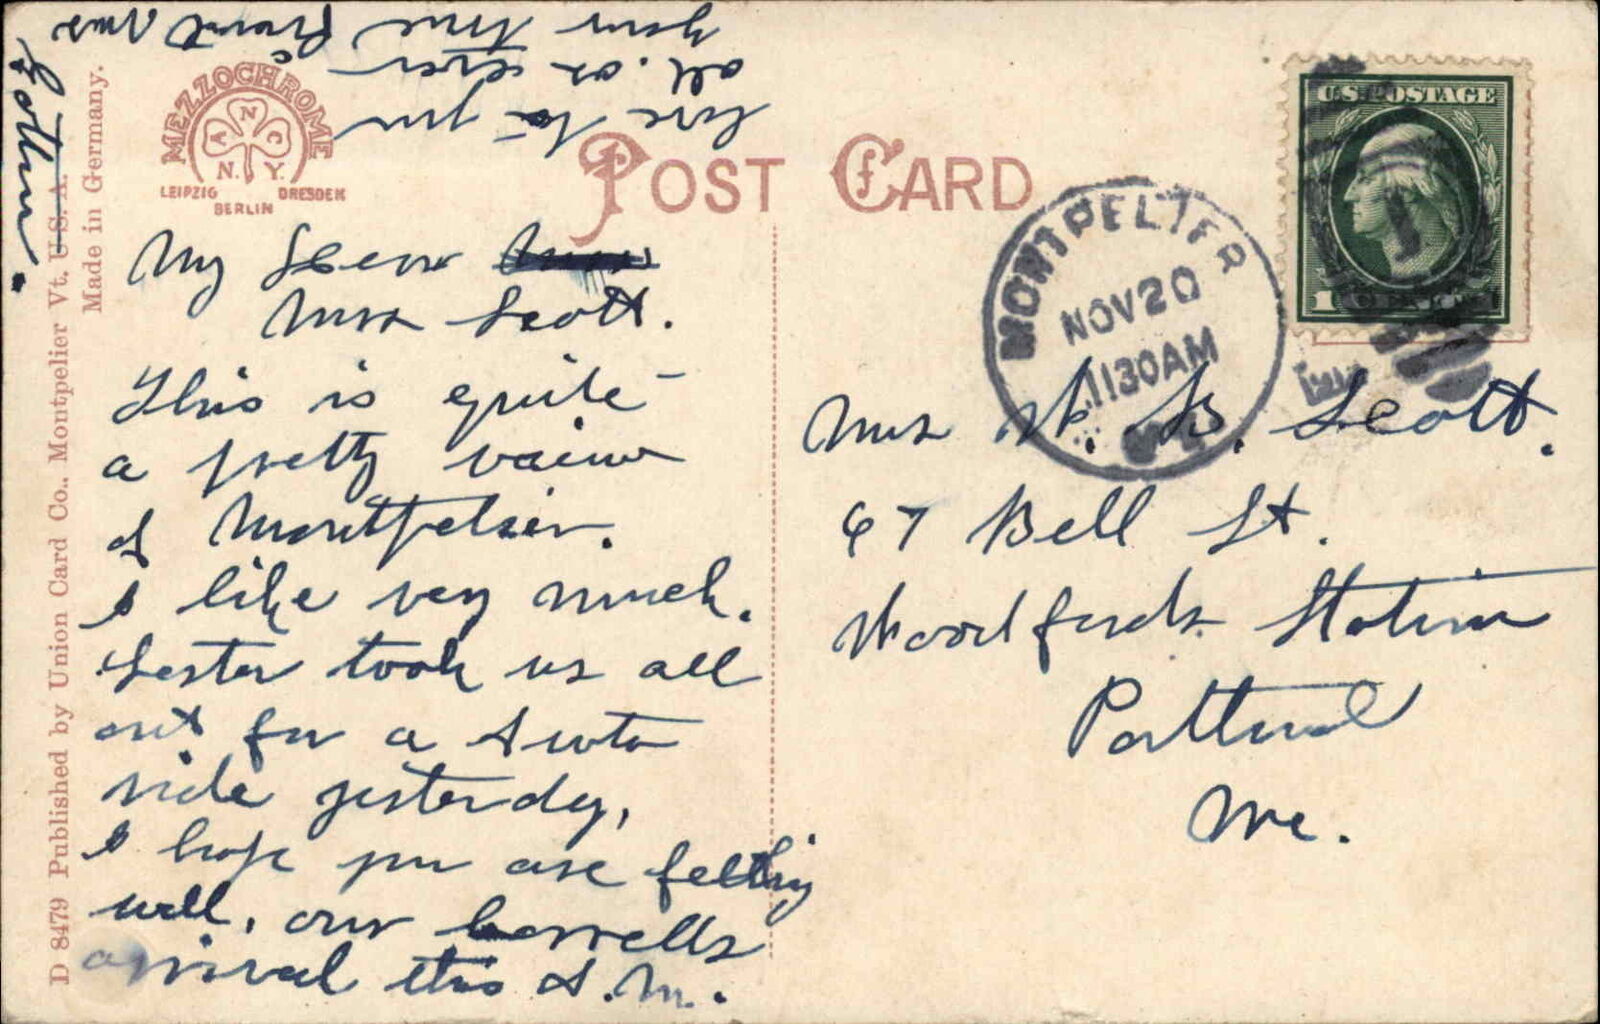 MEZZOCHROME
A N C
N. Y.
LEIPZIG DRESDEN
BERLIN
POST CARD
U.S. POSTAGE
1 CENT 1
MONTPELIER
NOV 20
1130AM
My Dear
Mrs Scott.
This is quite
a pretty vaiew
of Montpelier.
I like very much.
Lester took us all
out for a Auto
ride yesterday,
I hope you are feeling
well, our barrells
arrived this A.M.
love to you
all. as ever
your true friend Mrs
Mrs W. B. Scott.
67 Bell St.
Woodfords Station
Portland
Me.
D 8479 Published by Union Card Co., Montpelier Vt. U.S.A.
Made in Germany.